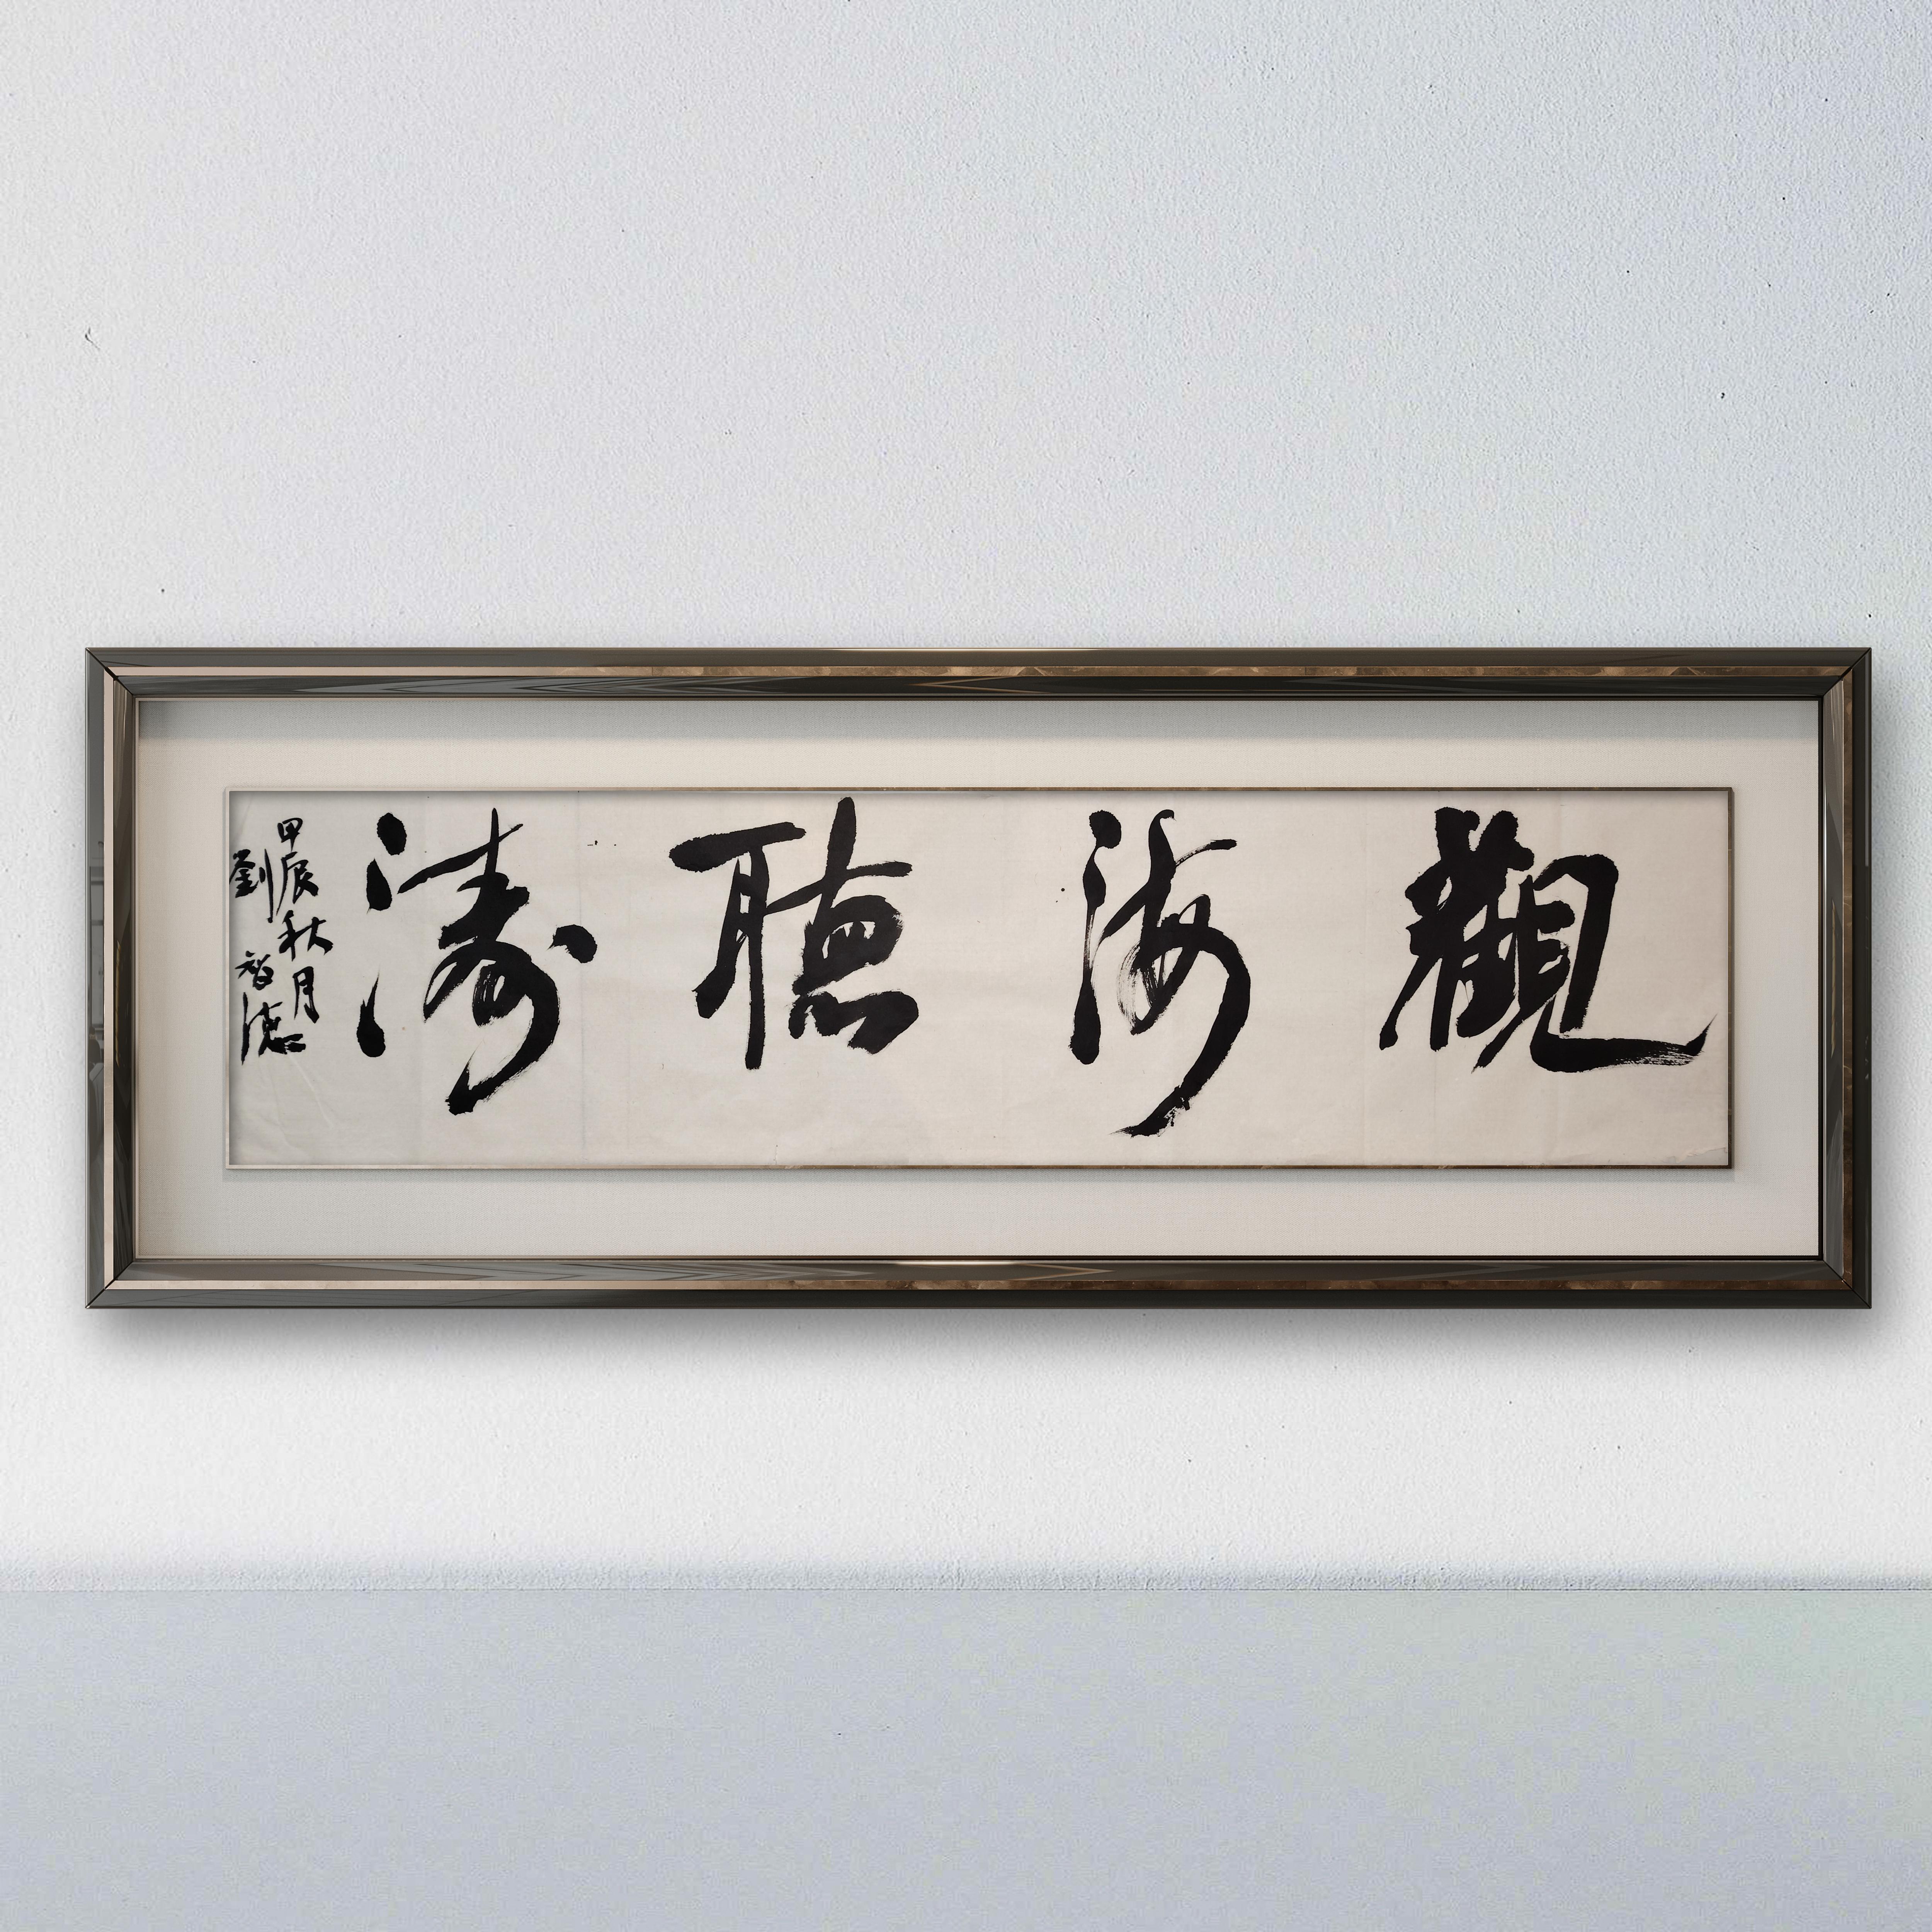 觀海聽濤
甲辰秋月
劉智德